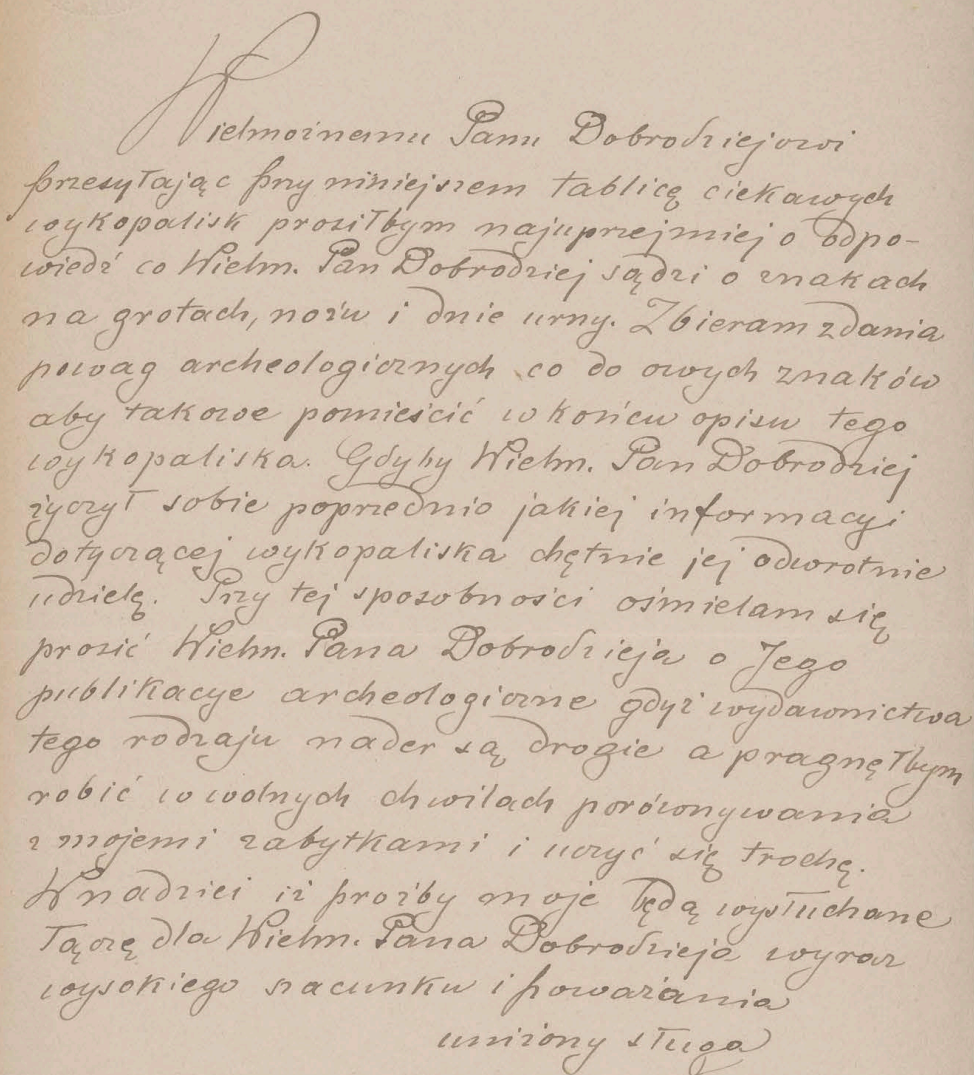 Wielmożnemu Panu Dobrodziejowi
przesyłając przy niniejszem tablicę ciekawych
wykopalisk prosiłbym najuprzejmiej o odpo-
wiedź co Wielm. Pan Dobrodziej sądzi o znakach
na grotach, nożu i dnie urny. Zbieram zdania
powag archeologicznych co do owych znaków
aby takowe pomieścić w końcu opisu tego
wykopaliska. Gdyby Wielm. Pan Dobrodziej
życzył sobie poprzednio jakiej informacyi
dotyczącej wykopaliska chętnie jej odwrotnie
udzielę. Przy tej sposobności ośmielam się
prosić Wielm. Pana Dobrodzieja o Jego
publikacye archeologiczne gdyż wydawnictwa
tego rodzaju nader są drogie a pragnęłbym
robić w wolnych chwilach porównywania
z mojemi zabytkami i uczyć się trochę.
W nadziei iż prośby moje będą wysłuchane
łączę dla Wielm. Pana Dobrodzieja wyraz
wysokiego szacunku i poważania
uniżony sługa